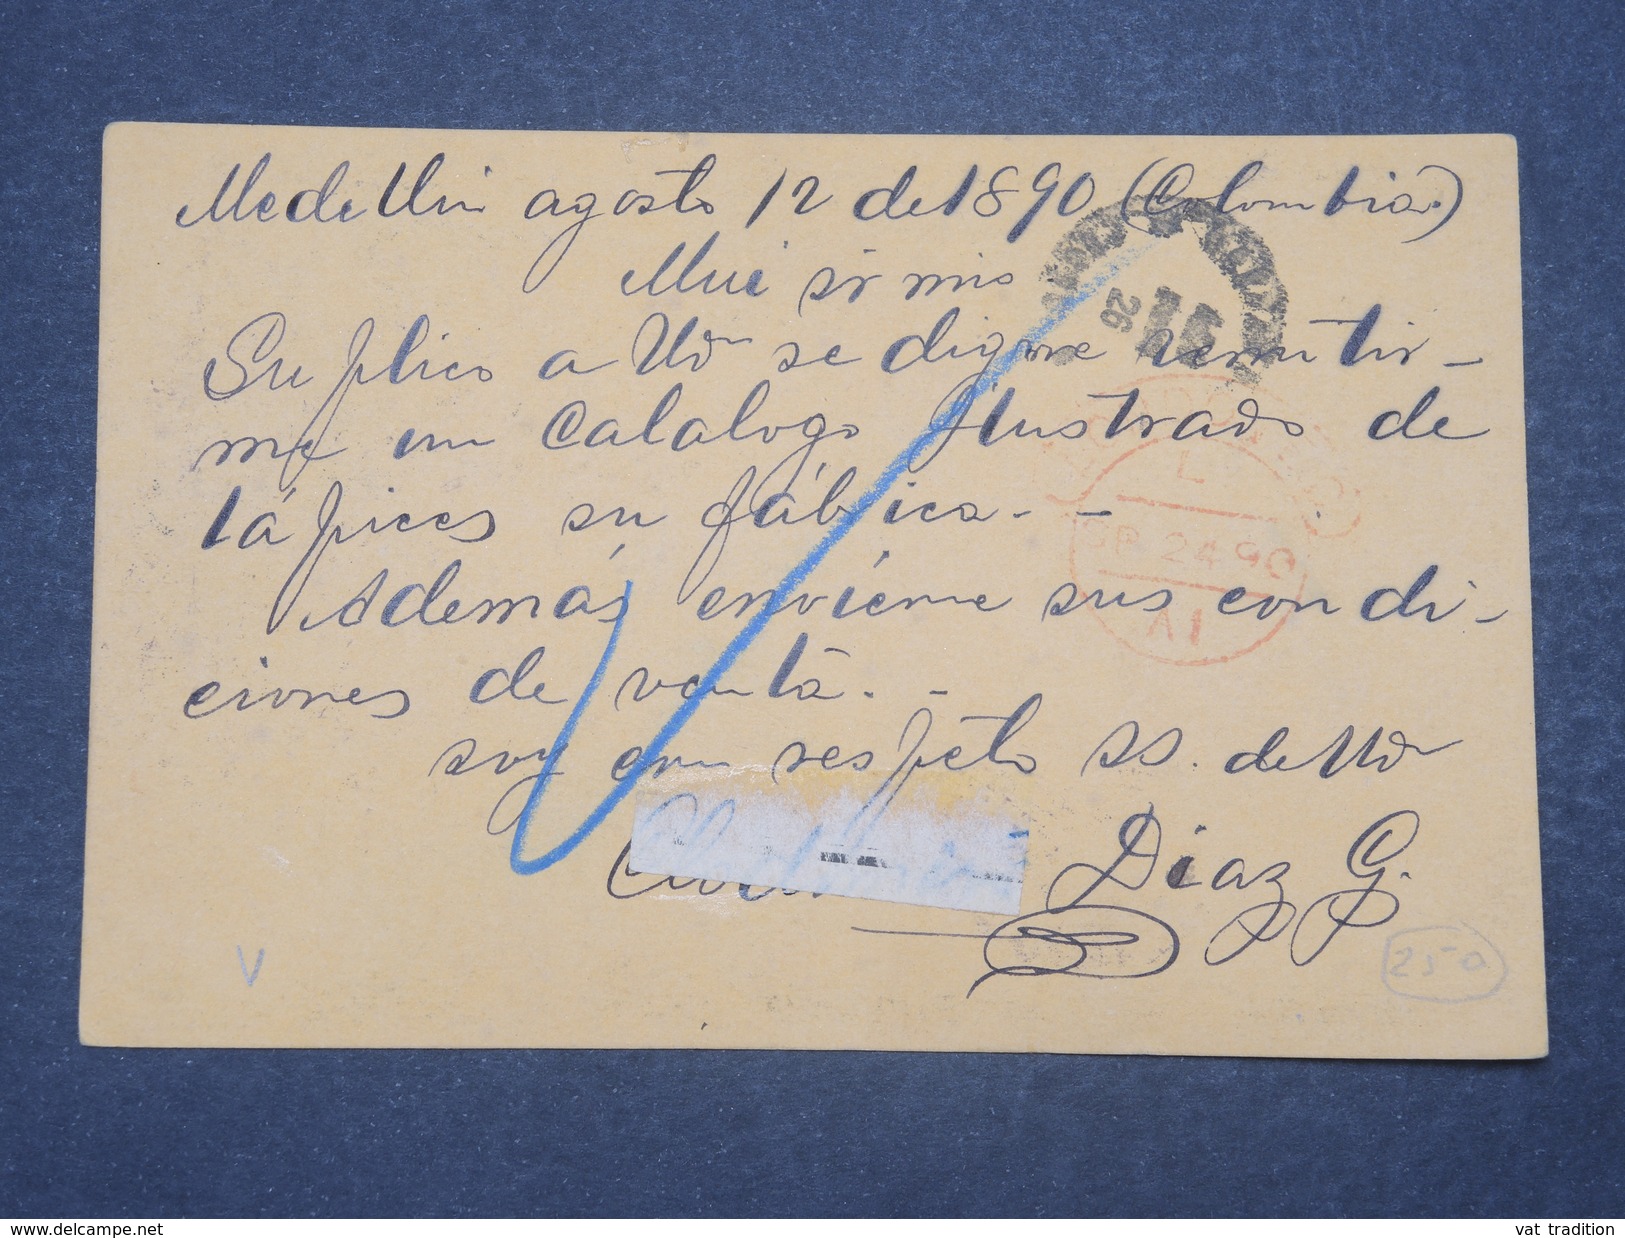 Medellin agosto 12 de 1890 (Colombia.)
Mui sr mio
Suplico a Ud se digne remitir-
me un Catalogo Ilustrado de
lápices su fábrica. -
Además envíeme sus condi-
ciones de venta. -
soy con respeto SS. de Ud
Diaz G.
26
L
SP 24 90
A1
V
250
www.delcampe.net
vat tradition